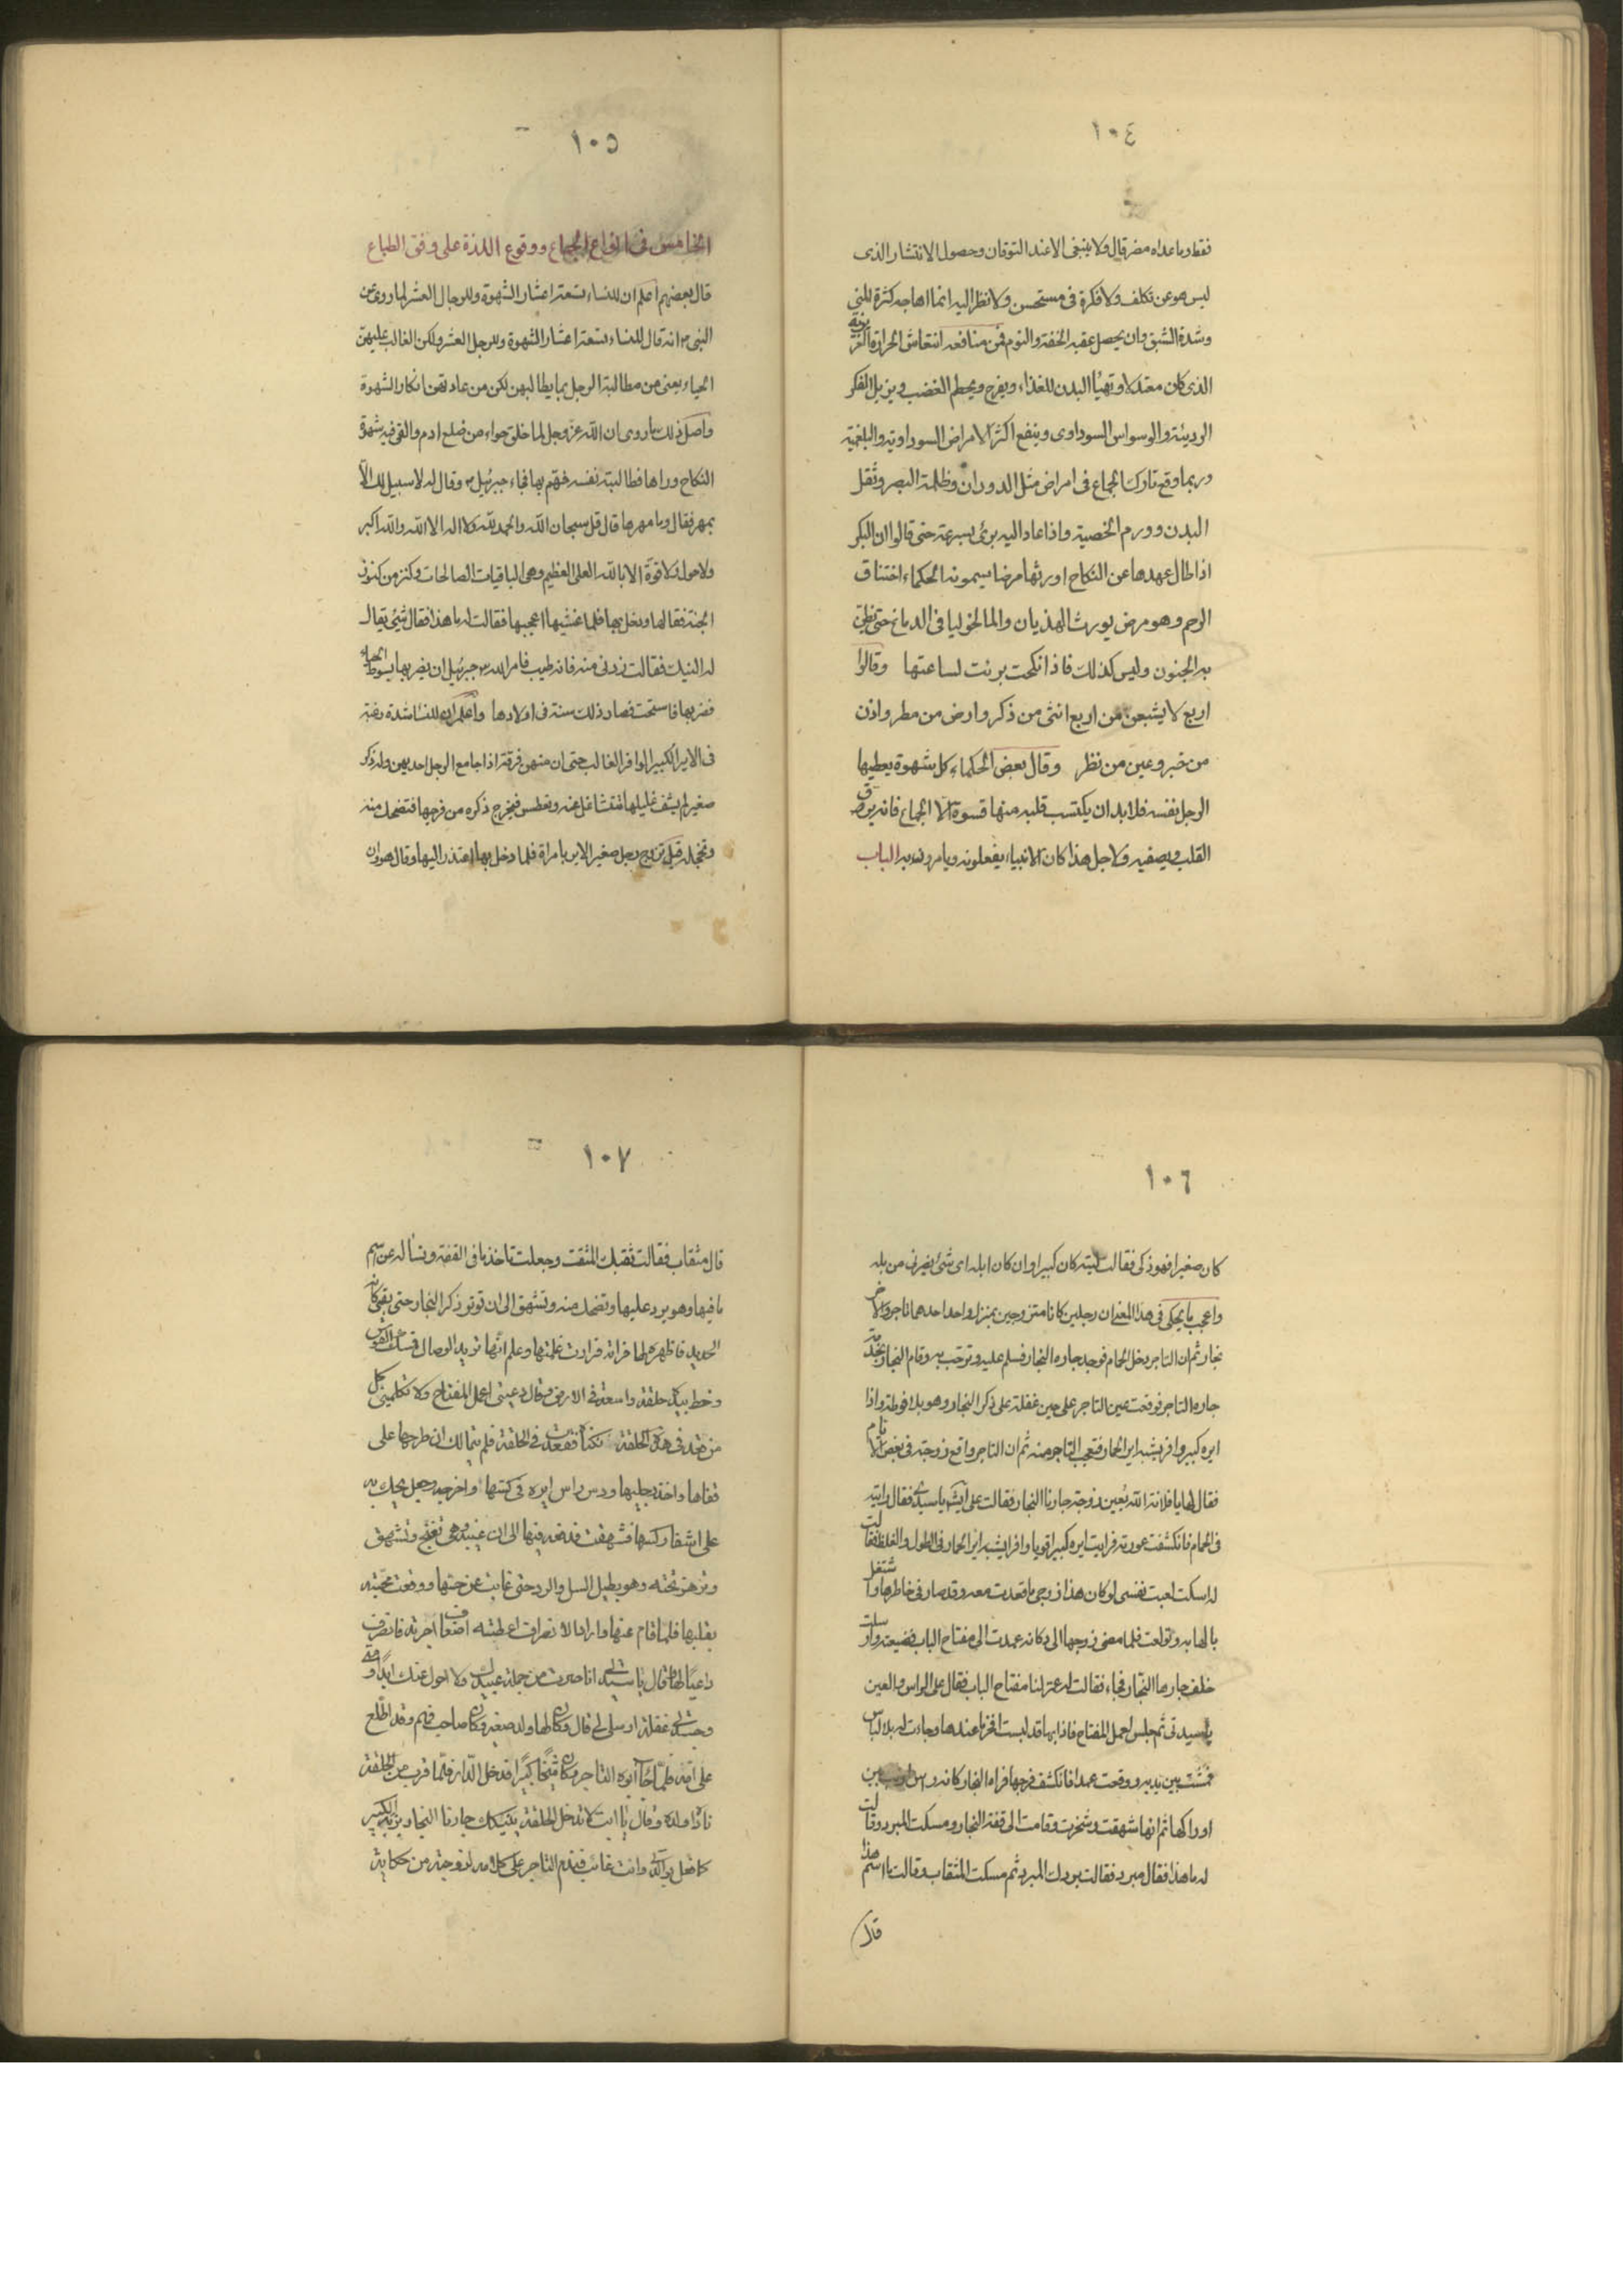 ١٠٤
فقط وما عداه مضر قال ولا ينبغى الا عند التوقان وحصول الانتشار الذى
ليس هو عن تكلف ولا فكرة فى مستحسن ولا نظر اليه انما اهاجه كثرة المنى
وشدة الشبق وان يحصل عقبه الخفة والنوم فمن منافعه انتعاش الحرارة الغريزية
الذى كان معتدلا وتهيأ البدن للغذاء ويفرح ويحطم الغضب ويزيل الفكر
الرديئة والوسواس السوداوى وينفع اكثر الامراض السوداوية والبلغمية
وربما وقع تارك الجماع فى امراض مثل الدوران وظلمة البصر وثقل
البدن وورم الخصية واذا عاد اليه برئ بسرعة حتى قالوا ان البكر
اذا طال عهدها عن النكاح اورثها مرضا يسمونه الحكماء اختناق
الرحم وهو مرض يورث الهذيان والمالخوليا فى الدماغ حتى يظن
به الجنون وليس كذلك فاذا نكحت برئت لساعتها وقالوا
اربع لا يشبعن من اربع انثى من ذكر وارض من مطر واذن
من خبر وعين من نظر وقال بعض الحكماء كل شهوة يعطيها
الرجل نفسه فلا بد ان يكتسب قلبه منها قسوة الا الجماع فانه يرق
القلب ويصفيه ولاجل هذا كان الانبياء يفعلونه ويامرون به الباب
١٠٥
الخامس فى انواع الجماع ووقوع اللذة على وفق الطباع
قال بعضهم اعلم ان للنساء تسعة اعشار الشهوة وللرجال العشر لما روى عن
النبى م انه قال للنساء تسعة اعشار الشهوة وللرجل العشر ولكن الغالب عليهن
الحياء يعنى من مطالبة الرجل بما يطالبهن لكن من عادتهن انكار الشهوة
واصل ذلك ما روى ان الله عز وجل لما خلق حواء من ضلع ادم والقى فيه شهوة
النكاح وراها فطالبته نفسه فهم بها فجاء جبرئيل م وقال له لا سبيل لك الا
بمهر فقال وما مهرها قال قل سبحان الله والحمد لله ولا اله الا الله والله اكبر
ولا حول ولا قوة الا بالله العلى العظيم وهى الباقيات الصالحات وكنز من كنوز
الجنة فقالها ودخل بها فلما غشيها اعجبها فقالت له ما هذا فقال شئ يقال
له النيك فقالت زدنى منه فانه طيب فامر الله جبرئيل ان يضربها بسوط الحياء
فضربها فاستحت فصار ذلك سنة فى اولادها واعلم ان للنساء شدة رغبة
فى الاير الكبير الوافر الغالب حتى ان منهن فرقة اذا جامع الرجل احديهن وله ذكر
صغير لم يشف غليلها فتتشاغل عنه وتعطس فيخرج ذكره من فرجها فتضحك منه
وتخجله قيل تزوج رجل صغير الاير بامراة فلما دخل بها اعتذر اليها وقال هو وان
١٠٦
كان صغيرا فهو ذكى فقالت ليته كان كبيرا وان كان ابله اى شئ يضرنى من بله
واعجب ما يحكى فى هذا المعنى ان رجلين كانا متزوجين بمنزل واحد احدهما تاجر والاخر
نجار ثم ان التاجر دخل الحمام فوجد جاره النجار فسلم عليه وترحب به وقام النجار بخدمة
جاره التاجر فوقعت عين التاجر على حين غفلة على ذكر النجار وهو بلا فوطة واذا
ايره كبير وافر يشبه اير الحمار فتعجب التاجر منه ثم ان التاجر واقع زوجته فى بعض الايام
فقال لها يا فلانة الله يعين زوجة جارنا النجار فقالت على ايش يا سيدى فقال رايته
فى الحمام فانكشفت عورته فرايت ايره كبيرا قويا وافرا يشبه اير الحمار فى الطول والغلظ فقالت
له اسكت لعبت نفسى لو كان هذا زوجى ما قعدت معه وقد صار فى خاطرها واشتغل
بالها به وتولعت فلما مضى زوجها الى دكانه عمدت الى مفتاح الباب فضيعته وارسلت
خلف جارها النجار فجاء فقالت له اعمل لنا مفتاح الباب فقال على الراس والعين
يا سيدتى ثم جلس لعمل المفتاح فاذا بها قد لبست افخر ما عندها وجاءت له بلا لباس
فمشت بين يديه ووقعت عمدا فانكشف فرجها فراه النجار كانه راس ارنب بين
اوراكها ثم انها شهقت وشخرت وقامت الى قفة النجار ومسكت المبرد وقالت
له ما هذا فقال مبرد فقالت بردك المبرد ثم مسكت المثقاب وقالت ما اسم هذا
قال
١٠٧
قال مثقاب فقالت ثقبك المثقب وجعلت تاخذ ما فى القفة وتساله عن اسم
ما فيها وهو يرد عليها وتضحك منه وتشهق الى ان توتر ذكر النجار حتى بقى كانه
الحديد فاظهره لها فراته فزادت غلمتها وعلم انها تريد الوصال فمسك القوس
وخط بيكا حلقة واسعة فى الارض وقال دعينى اعمل المفتاح ولا تكلمينى فكل
من قعد فى هذه الحلقة نكته فقعدت فى الحلقة فلم يتمالك ان طرحها على
قفاها واخذ برجليها ودس راس ايره فى كسها واخرجه وجعل يحك به
على اشفار كسها فشهقت فدفعه فيها الى ان غيبه وهى تغنج وتشهق
وترهز تحته وهو يطيل السل والرد حتى غابت عن حسها ووقعت محبته
بقلبها فلما قام عنها واراد الانصراف اعطته اضعاف اجرته فانصرف
داعيا لها وقال يا ستى انا صرت من جملة عبيدك ولا احول عنك ابدا ومتى
وجدتى غفلة ارسلى لى قال وكان لها ولد صغير وكان صاحب فهم وقد اطلع
على امه فلما جاء ابوه التاجر وكان شيخا كبيرا فدخل الدار فلما قرب من الحلقة
ناداه ولده وقال يا ابت لا تدخل الحلقة ينيكك جارنا النجار بزبه الكبير
كما فعل بوالدتى وانت غائب فندم التاجر على كلامه لزوجته من حكاية